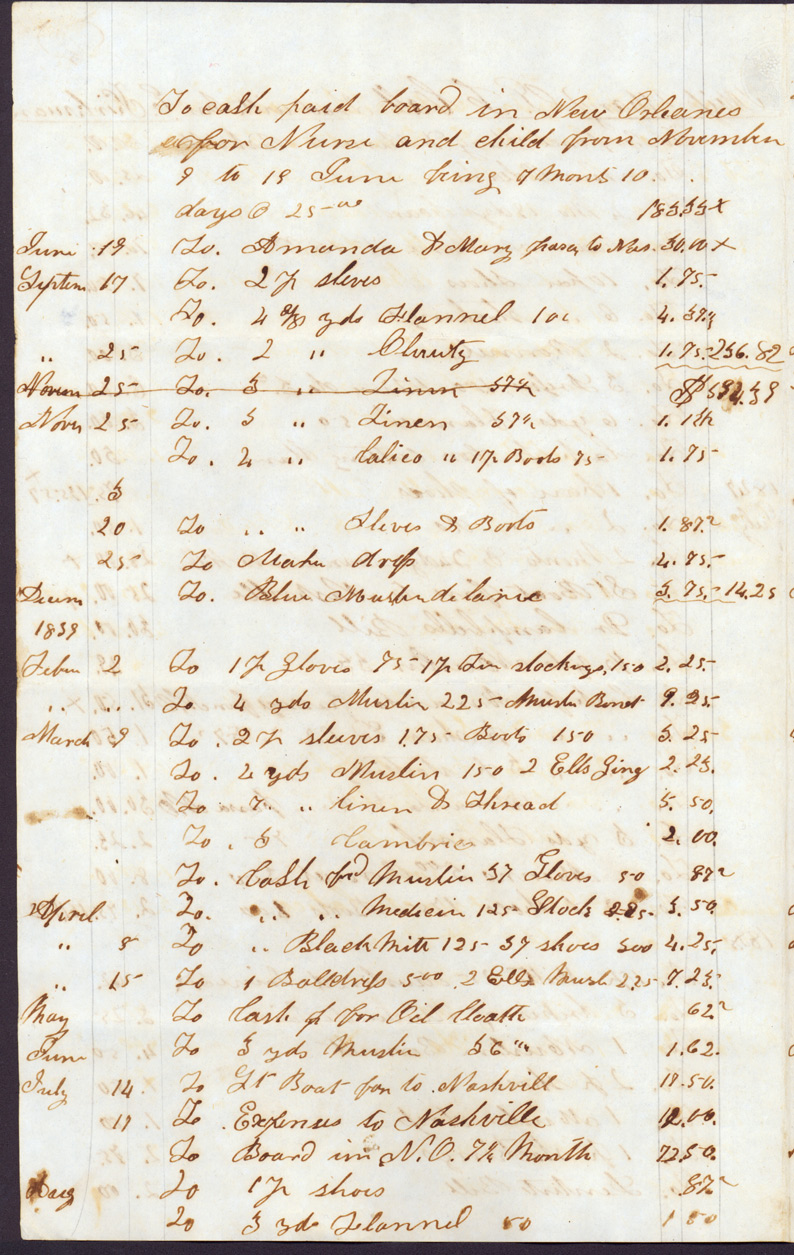 To cash paid board in New Orleanes
for Nurse and child from November
9 to 19 June being 7 Mont 10
days @ 25-00 183.33 x
June 19 To. Amanda & Mary to 30.00 x
Septem 17 To. 2 p sleves 1.75-
To. 4 yds Flannel 4.37½
" 25 To. 2 " 1.75- 256.82
Novem 25- To. 3 " Linen 37½
Novr 25 To. 3 " Linen 37½ 1.12½
To. 2 " Calico " 1 p Boots 75- 1.75
3
20 To " " Sleves & Boots 1.87½
25- To dress 4.75-
Decem To. Blue Muslin delanie 3.75- 14.25
1839
Febu 2 To 1 p Gloves 75- 1 p stockings 150 2.25-
" " To 4 yds Muslin 225- Muslin Bonet 9.25-
March 9 To. 2 p sleeves 175- Boots 150 3.25
To. 2 yds Muslin 150 2 Ells Ging 2.25.
To 7 " linen & Thread 5.50.
To. 3 Cambric 2.00.
To. Cash pd Muslin 37 Gloves 50 87½
April To. " " Medicin 125- 3.50
" 8 To " Black Mitt 125- 37 shoes 300 4.25.
" 15- To 1 Balldress 500 2 Ells Musl 225- 7.25.
May To Cash pd for Oil Cloath 62½
June To 3 yds Muslin 1.62.
July 14 To St Boat to Nashvill 18.50.
18 To Expenses to Nashville
To Board in N.O. 7¼ Month 72.50.
Aug To 1 p shoes 87½
To 3 yds Flannel 50 1 50